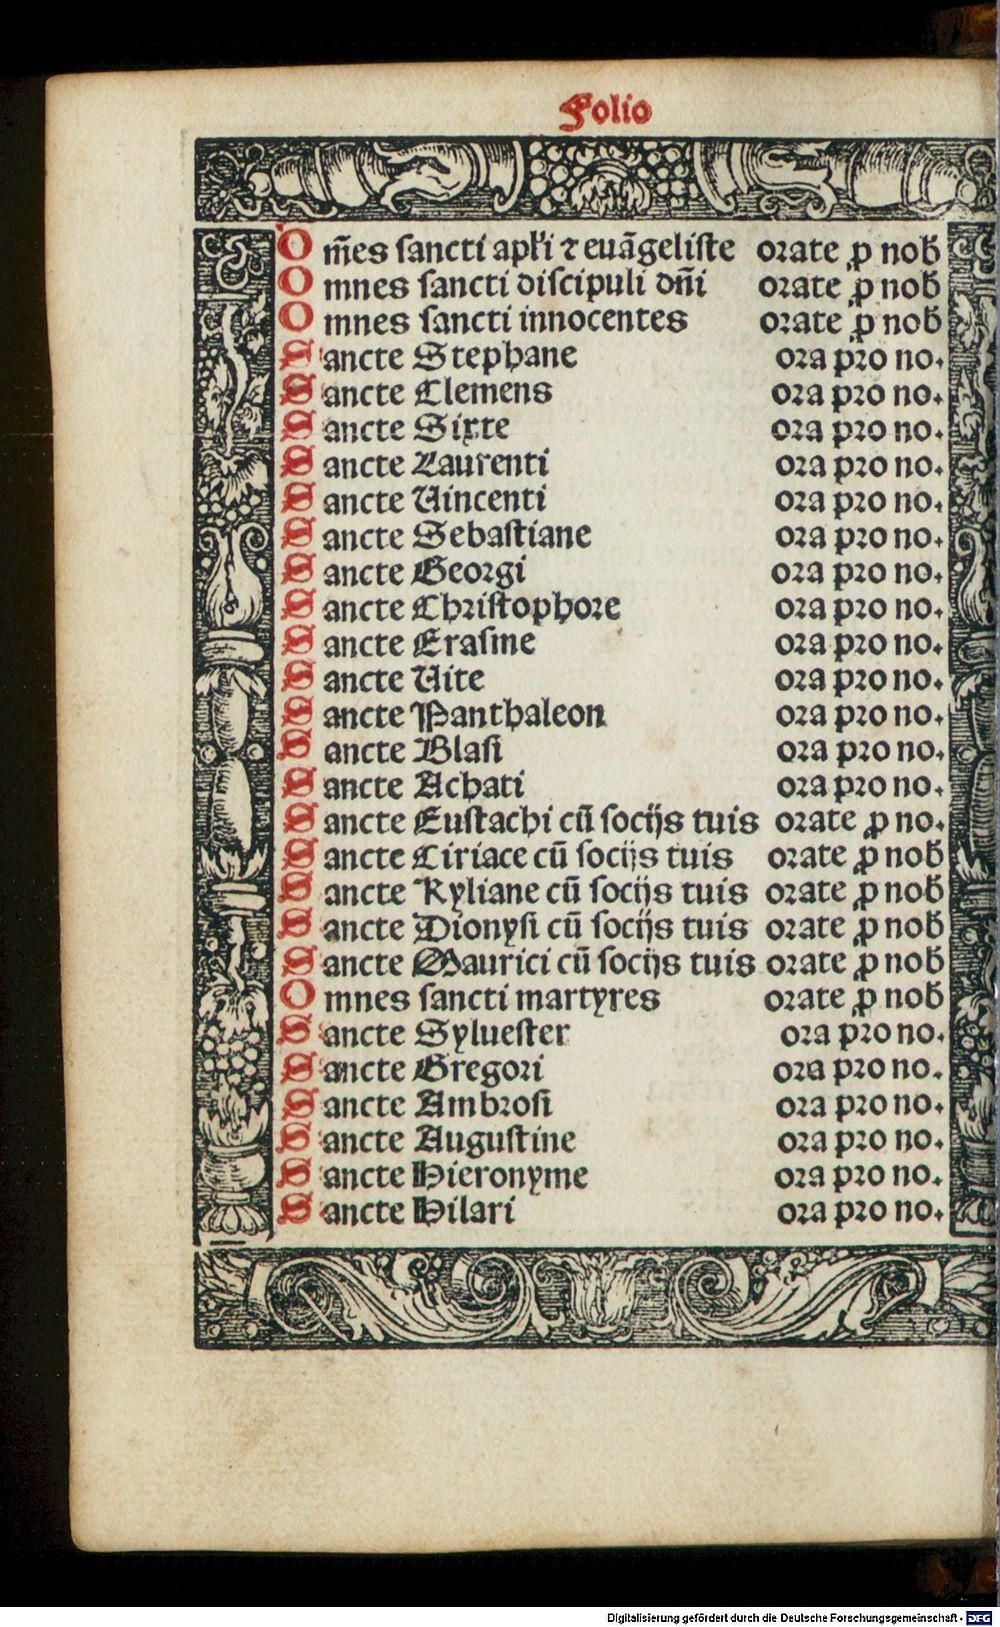 Folio
Om̄es sancti apl'i ⁊ euāgeliste orate ꝓ nob
Omnes sancti discipuli dn̄i orate ꝓ nob
Omnes sancti innocentes orate ꝓ nob
Sancte Stephane ora pro no.
Sancte Clemens ora pro no.
Sancte Sixte ora pro no.
Sancte Laurenti ora pro no.
Sancte Vincenti ora pro no.
Sancte Sebastiane ora pro no.
Sancte Georgi ora pro no.
Sancte Christophore ora pro no.
Sancte Erasme ora pro no.
Sancte Vite ora pro no.
Sancte Panthaleon ora pro no.
Sancte Blasi ora pro no.
Sancte Achati ora pro no.
Sancte Eustachi cū socijs tuis orate ꝓ no.
Sancte Ciriace cū socijs tuis orate ꝓ nob
Sancte Kyliane cū socijs tuis orate ꝓ nob
Sancte Dionysi cū socijs tuis orate ꝓ nob
Sancte Maurici cū socijs tuis orate ꝓ nob
Omnes sancti martyres orate ꝓ nob
Sancte Syluester ora pro no.
Sancte Gregori ora pro no.
Sancte Ambrosi ora pro no.
Sancte Augustine ora pro no.
Sancte Hieronyme ora pro no.
Sancte Hilari ora pro no.
Digitalisierung gefördert durch die Deutsche Forschungsgemeinschaft - DFG